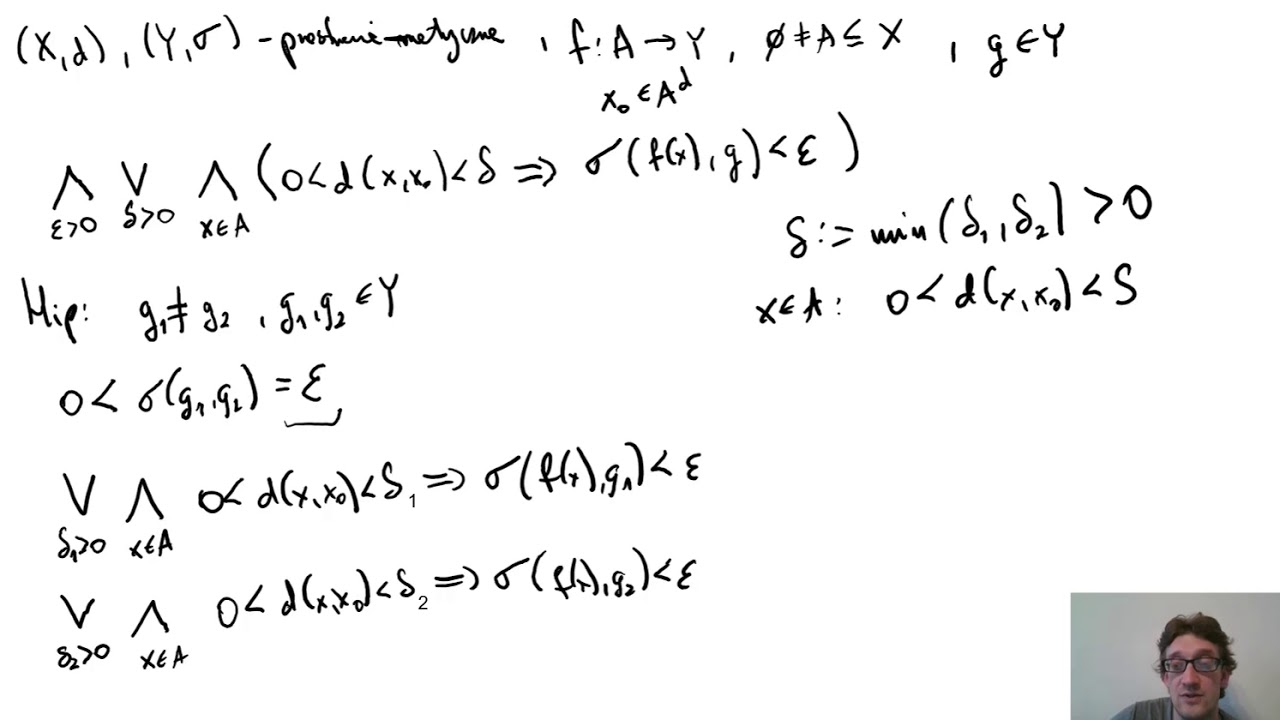 (X,d), (Y,σ) - przestrzenie metryczne, f: A → Y, ∅ ≠ A ⊆ X, g ∈ Y
x₀ ∈ Aᵈ
⋀_{ε>0} ⋁_{δ>0} ⋀_{x∈A} (0 < d(x,x₀) < δ ⇒ σ(f(x), g) < ε)
δ := min(δ₁, δ₂) > 0
x ∈ A: 0 < d(x,x₀) < δ
Hip: g₁ ≠ g₂, g₁,g₂ ∈ Y
0 < σ(g₁,g₂) = ε
⋁_{δ₁>0} ⋀_{x∈A} 0 < d(x,x₀) < δ₁ ⇒ σ(f(x),g₁) < ε
⋁_{δ₂>0} ⋀_{x∈A} 0 < d(x,x₀) < δ₂ ⇒ σ(f(x),g₂) < ε